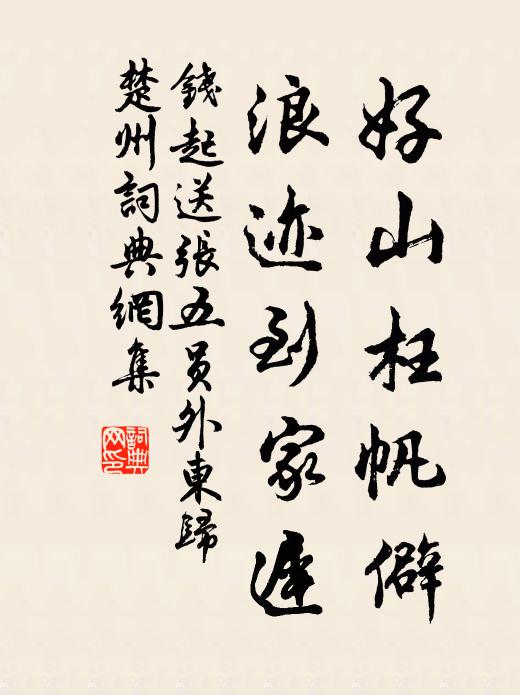 好山枉帆僻
浪迹到家遲
錢起送張五員外東歸
楚州詞典網集
詞典網印